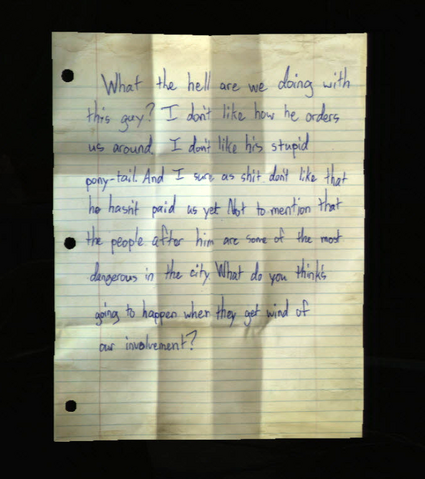 What the hell are we doing with
this guy? I don't like how he orders
us around I don't like his stupid
pony-tail. And I sure as shit don't like that
he hasn't paid us yet Not to mention that
the people after him are some of the most
dangerous in the city What do you think's
going to happen when they get wind of
our involvement?